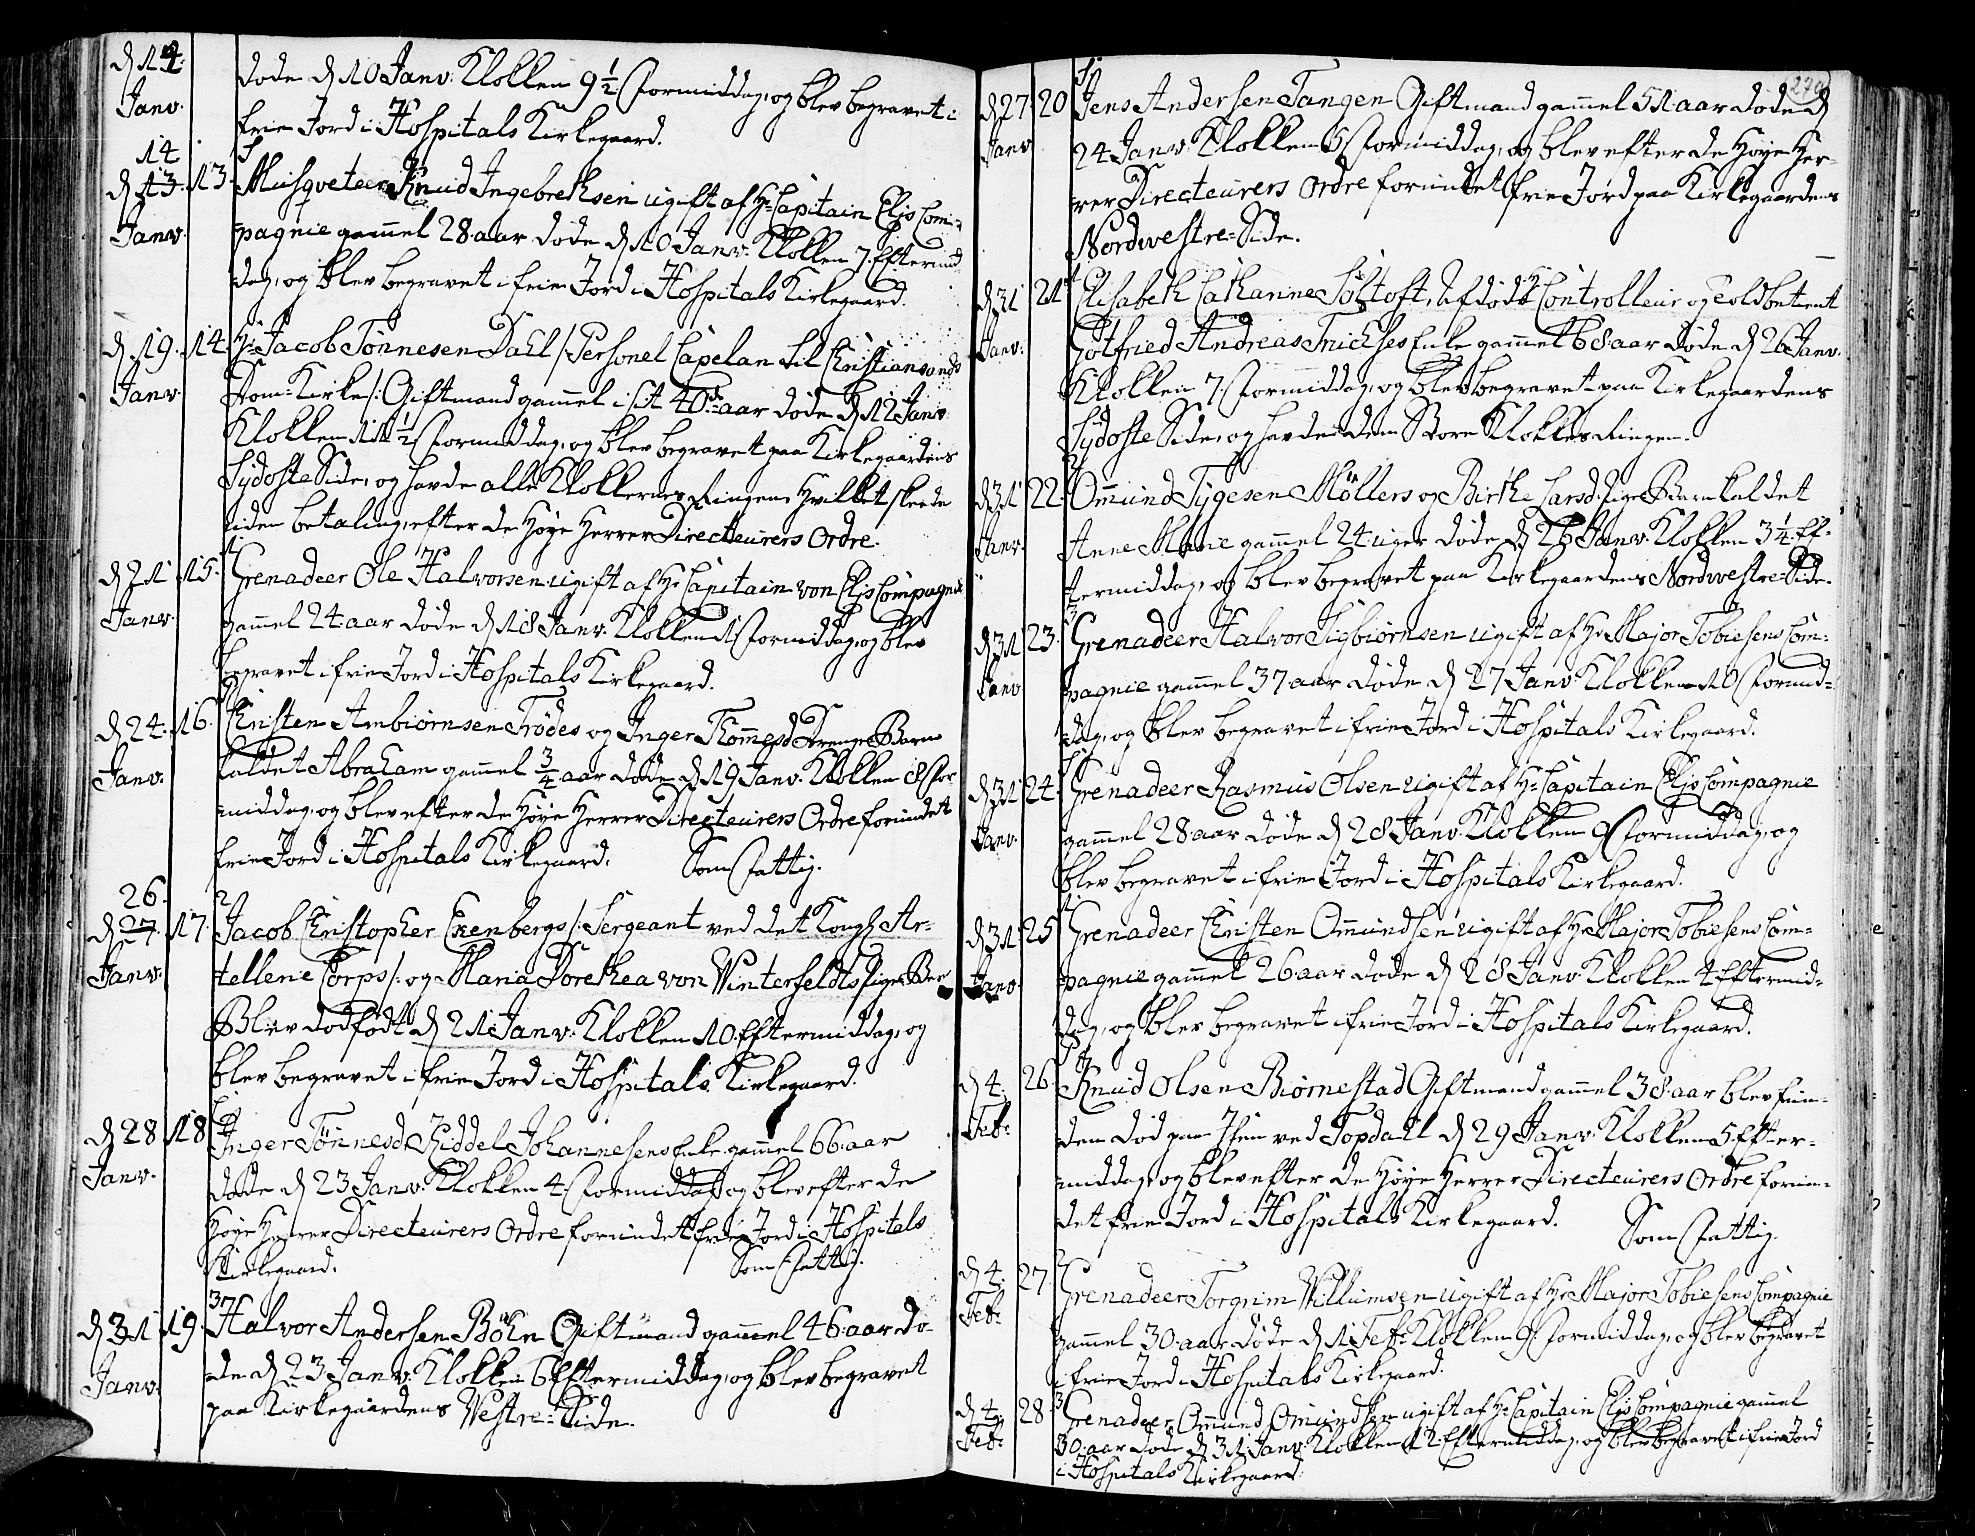 d 14.
Janv.
døde d 10 Janv. Klokken 9 1/2 Formiddag, og blev begravet i
frie Jord i Hospitals Kirkegaard.
14
d 13. 13. Musqveteer Knud Ingebrethsen ugift af Hr Capitain Elis Com-
Janv. pagnie gam̄el 28 aar døde d 10 Janv. Klokken 7. Eftermid
dag, og blev begravet i frie Jord i Hospitals Kirkegaard.
d. 19. 14. Hr Jacob Tönnesen Dahl /: Personel Capelan til Christiansands
Janv. Dom-Kirke /: Giftmand gam̄el i sit 40de aar døde d 12 Janv.
Klokken 11 1/2 Formiddag, og blev begravet paa Kirkegaardens
Sydoste Side, og havde alle Klokkernes Ringen, hvilket skeede
uden betaling, efter de Høye Herrer Directeurers Ordre.
d 21 15. Grenadeer Ole Halvorsen ugift af Hr Capitain von Elis Compagnie
Janv. gam̄el 24 aar døde d 18 Janv. Klokken 1 Formiddag, og blev
begravet i frie Jord i Hospitals Kirkegaard.
d 24. 16. Christen Ambiörnsen Trödes og Inger Thom̄esd Drenge Barn
Janv. kaldet Abraham gam̄el 3/4 aar døde d 19 Janv. Klokken 8 For
middag, og blev efter de Høye Herrer Directeurers Ordre forundet
frie Jord i Hospitals Kirkegaard. Som Fattig.
26.
2
d 27. 17. Jacob Christopher Exenbergs /: Sergeant ved det Kongl Ar-
Janv. tellerie Corps /: og Maria Dorethea von Winterfeldts Pige Barn
Blev dødfødt d 21 Janv. Klokken 10 Eftermiddag, og
blev begravet i frie Jord i Hospitals Kirkegaard.
d 28 18 Inger Tönnesd Kiddel Johannesens Enke gam̄el 66 aar
Janv. døde d 23 Janv. Klokken 4 Formiddag og blev efter de
Høye Herrer Directeurers Ordre forundet frie Jord i Hospitals
Kirkegaard. Som Fattig.
37
d 31 19. Halvor Andersen Böhn Giftmand gam̄el 46 aar dø-
Janv. de d 23 Janv. Klokken 6 Eftermiddag, og blev begravet
paa Kirkegaardens Vestre-Side.
d 27 20 Jens Andersen Tangen Giftmand gam̄el 51 aar døde d
Janv 24 Janv. Klokken 5 Formiddag, og blev efter de Høye Her-
rer Directeurers Ordre forundet frie Jord paa Kirkegaardens
Nordvestre-Side.
d 31 21 Elisabeth Catharine Söltoft, Afdöde Hr Controlleur og Toldbetient
Janv. Gotfried Andreas Enke gam̄el 68 aar døde d 26 Janv.
Klokken 7 Formiddag, og blev begravet paa Kirkegaardens
Sydoste Side, og havde den Store Klokkes Ringen.
d 31 22. Om̄und Tygesen Möllers og Birthe Larsd. Pige Barn kaldet
Janv. Anne Marie gam̄el 24 uger døde d 26 Janv. Klokken 3 1/4 Ef-
termiddag, og blev begravet paa Kirkegaardens Nordvestre-Side.
3
d 31 23. Grenadeer Halvor Sigbiörnsen ugift af Hr Major Tobiesens Com-
Janv pagnie gam̄el 37 aar døde d 27 Janv. Klokken 10 Formid-
dag, og blev begravet i frie Jord i Hospitals Kirkegaard.
d 31 24. Grenadeer Rasmus Olsen ugift af Hr Capitain Elis Compagnie
Janv. gam̄el 28 aar døde d 28 Janv. Klokken 9 Formiddag, og
blev begravet i frie Jord i Hospitals Kirkegaard.
d 31 25 Grenadeer Christen Om̄undsen ugift af Hr Major Tobiesens Com-
Janv pagnie gam̄el 26 aar døde d 28 Janv. Klokken 4 Eftermid-
dag, og blev begravet i frie Jord i Hospitals Kirkegaard.
d 4. 26 Knud Olsen Biörnestad Giftmand gam̄el 38 aar blev fun-
Feb: den död paa Isen ved Topdall d 29 Janv. Klokken 5 Efter-
middag, og blev efter de Høye Herrer Directeurers Ordre forun-
det frie Jord i Hospitals Kirkegaard. Som Fattig.
d 4. 27 Grenadeer Torgrim Willumsen ugift af Hr Major Tobiesens Compagnie
Feb: gam̄el 30 aar døde d 1 Feb: Klokken 9 Formiddag, og blev begravet
i frie Jord i Hospitals Kirkegaard.
3
d 4 28 Grenadeer Om̄und Om̄undsen ugift af Hr Capitain Elis Compagnie gam̄el
Feb: 30 aar døde d 31 Janv. Klokken 12 Eftermiddag, og blev begravet i frie Jord
i Hospitals Kirkegaard.